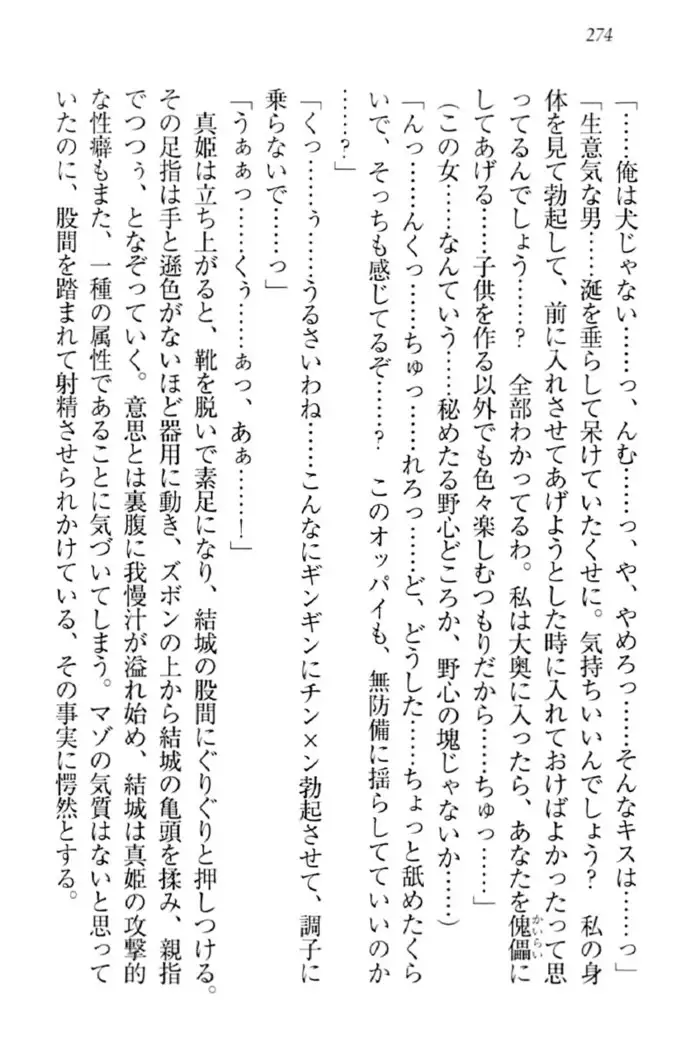 274
「……俺は犬じゃない……っ、んむ……っ、や、やめろっ……そんなキスは……っ」
「生意気な男……涎を垂らして呆けていたくせに。気持ちいいんでしょう？　私の身
体を見て勃起して、前に入れさせてあげようとした時に入れておけばよかったって思
ってるんでしょう……？　全部わかってるわ。私は大奥に入ったら、あなたを傀儡に
かいらい
してあげる……子供を作る以外でも色々楽しむつもりだから……ちゅっ……」
（この女……なんていう……秘めたる野心どころか、野心の塊じゃないか……）
「んっ……んくっ……ちゅっ……れろっ……ど、どうした……ちょっと舐めたくら
いで、そっちも感じてるぞ……？　このオッパイも、無防備に揺らしてていいのか
……？」
「くっ……ぅ……うるさいわね……こんなにギンギンにチン×ン勃起させて、調子に
乗らないで……っ」
「うぁぁっ……くぅ……ぁっ、あぁ……！」
　真姫は立ち上がると、靴を脱いで素足になり、結城の股間にぐりぐりと押しつける。
その足指は手と遜色がないほど器用に動き、ズボンの上から結城の亀頭を揉み、親指
でつつぅ、となぞっていく。意思とは裏腹に我慢汁が溢れ始め、結城は真姫の攻撃的
な性癖もまた、一種の属性であることに気づいてしまう。マゾの気質はないと思って
いたのに、股間を踏まれて射精させられかけている、その事実に愕然とする。